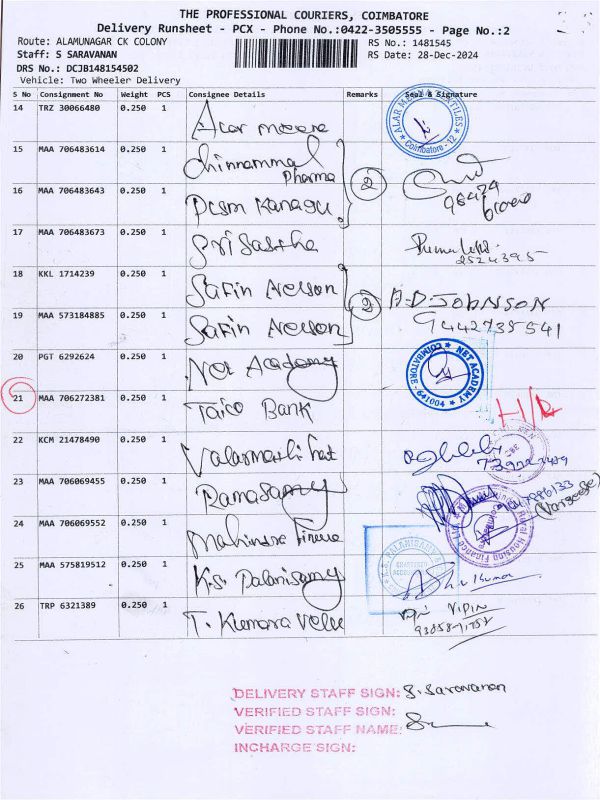 THE PROFESSIONAL COURIERS, COIMBATORE
Delivery Runsheet - PCX - Phone No.:0422-3505555 - Page No.:2
Route: ALAMUNAGAR CK COLONY RS No.: 1481545
Staff: S SARAVANAN RS Date: 28-Dec-2024
DRS No.: DCJB148154502
Vehicle: Two Wheeler Delivery
S No Consignment No Weight PCS Consignee Details Remarks Seal & Signature
14 TRZ 30066480 0.250 1 Alar meera
15 MAA 706483614 0.250 1 Chinnammal Pharma 2
16 MAA 706483643 0.250 1 Pcsm Kanagu
17 MAA 706483673 0.250 1 Sri Sastha 2524395
18 KKL 1714239 0.250 1 Safin Nelson 2 A.D.JOHNSON
19 MAA 573184885 0.250 1 Safin Nelson 9442735541
20 PGT 6292624 0.250 1 Net Academy NET ACADEMY COIMBATORE - 641004
21 MAA 706272381 0.250 1 Taico Bank
22 KCM 21478490 0.250 1
23 MAA 706069455 0.250 1 Ramasamy
24 MAA 706069552 0.250 1 Mahindra Finance
25 MAA 575819512 0.250 1 K.S. Palanisamy K.S. PALANISAMY
26 TRP 6321389 0.250 1 T. Kumara Velu VIPIN
DELIVERY STAFF SIGN: S. Saravanan
VERIFIED STAFF SIGN:
VERIFIED STAFF NAME:
INCHARGE SIGN: